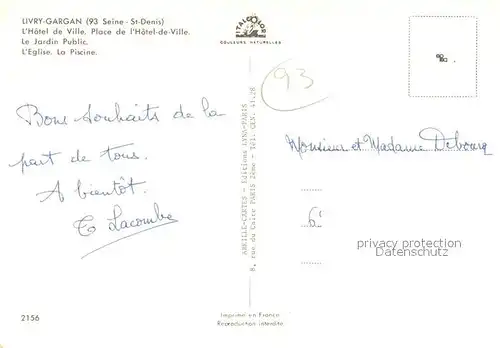 LIVRY-GARGAN (93 Seine-St-Denis)
L'Hôtel de Ville. Place de l'Hôtel-de-Ville.
Le Jardin Public.
L'Eglise. La Piscine.
ITALCOLOR
COULEURS NATURELLES
93
Bons souhaits de la
part de tous.
A bientôt.
Lacombe
ABEILLE-CARTES - Editions LYNA-PARIS
8, rue du Caire PARIS 2ème - Tél. CEN. 41.28
Monsieur et Madame Debourg
6
privacy protection
Datenschutz
2156
Imprimé en France
Reproduction interdite